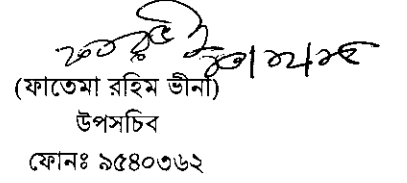 (ফাতেমা রহিম ভীনা)
উপসচিব
ফোনঃ ৯৫৪০৩৬২